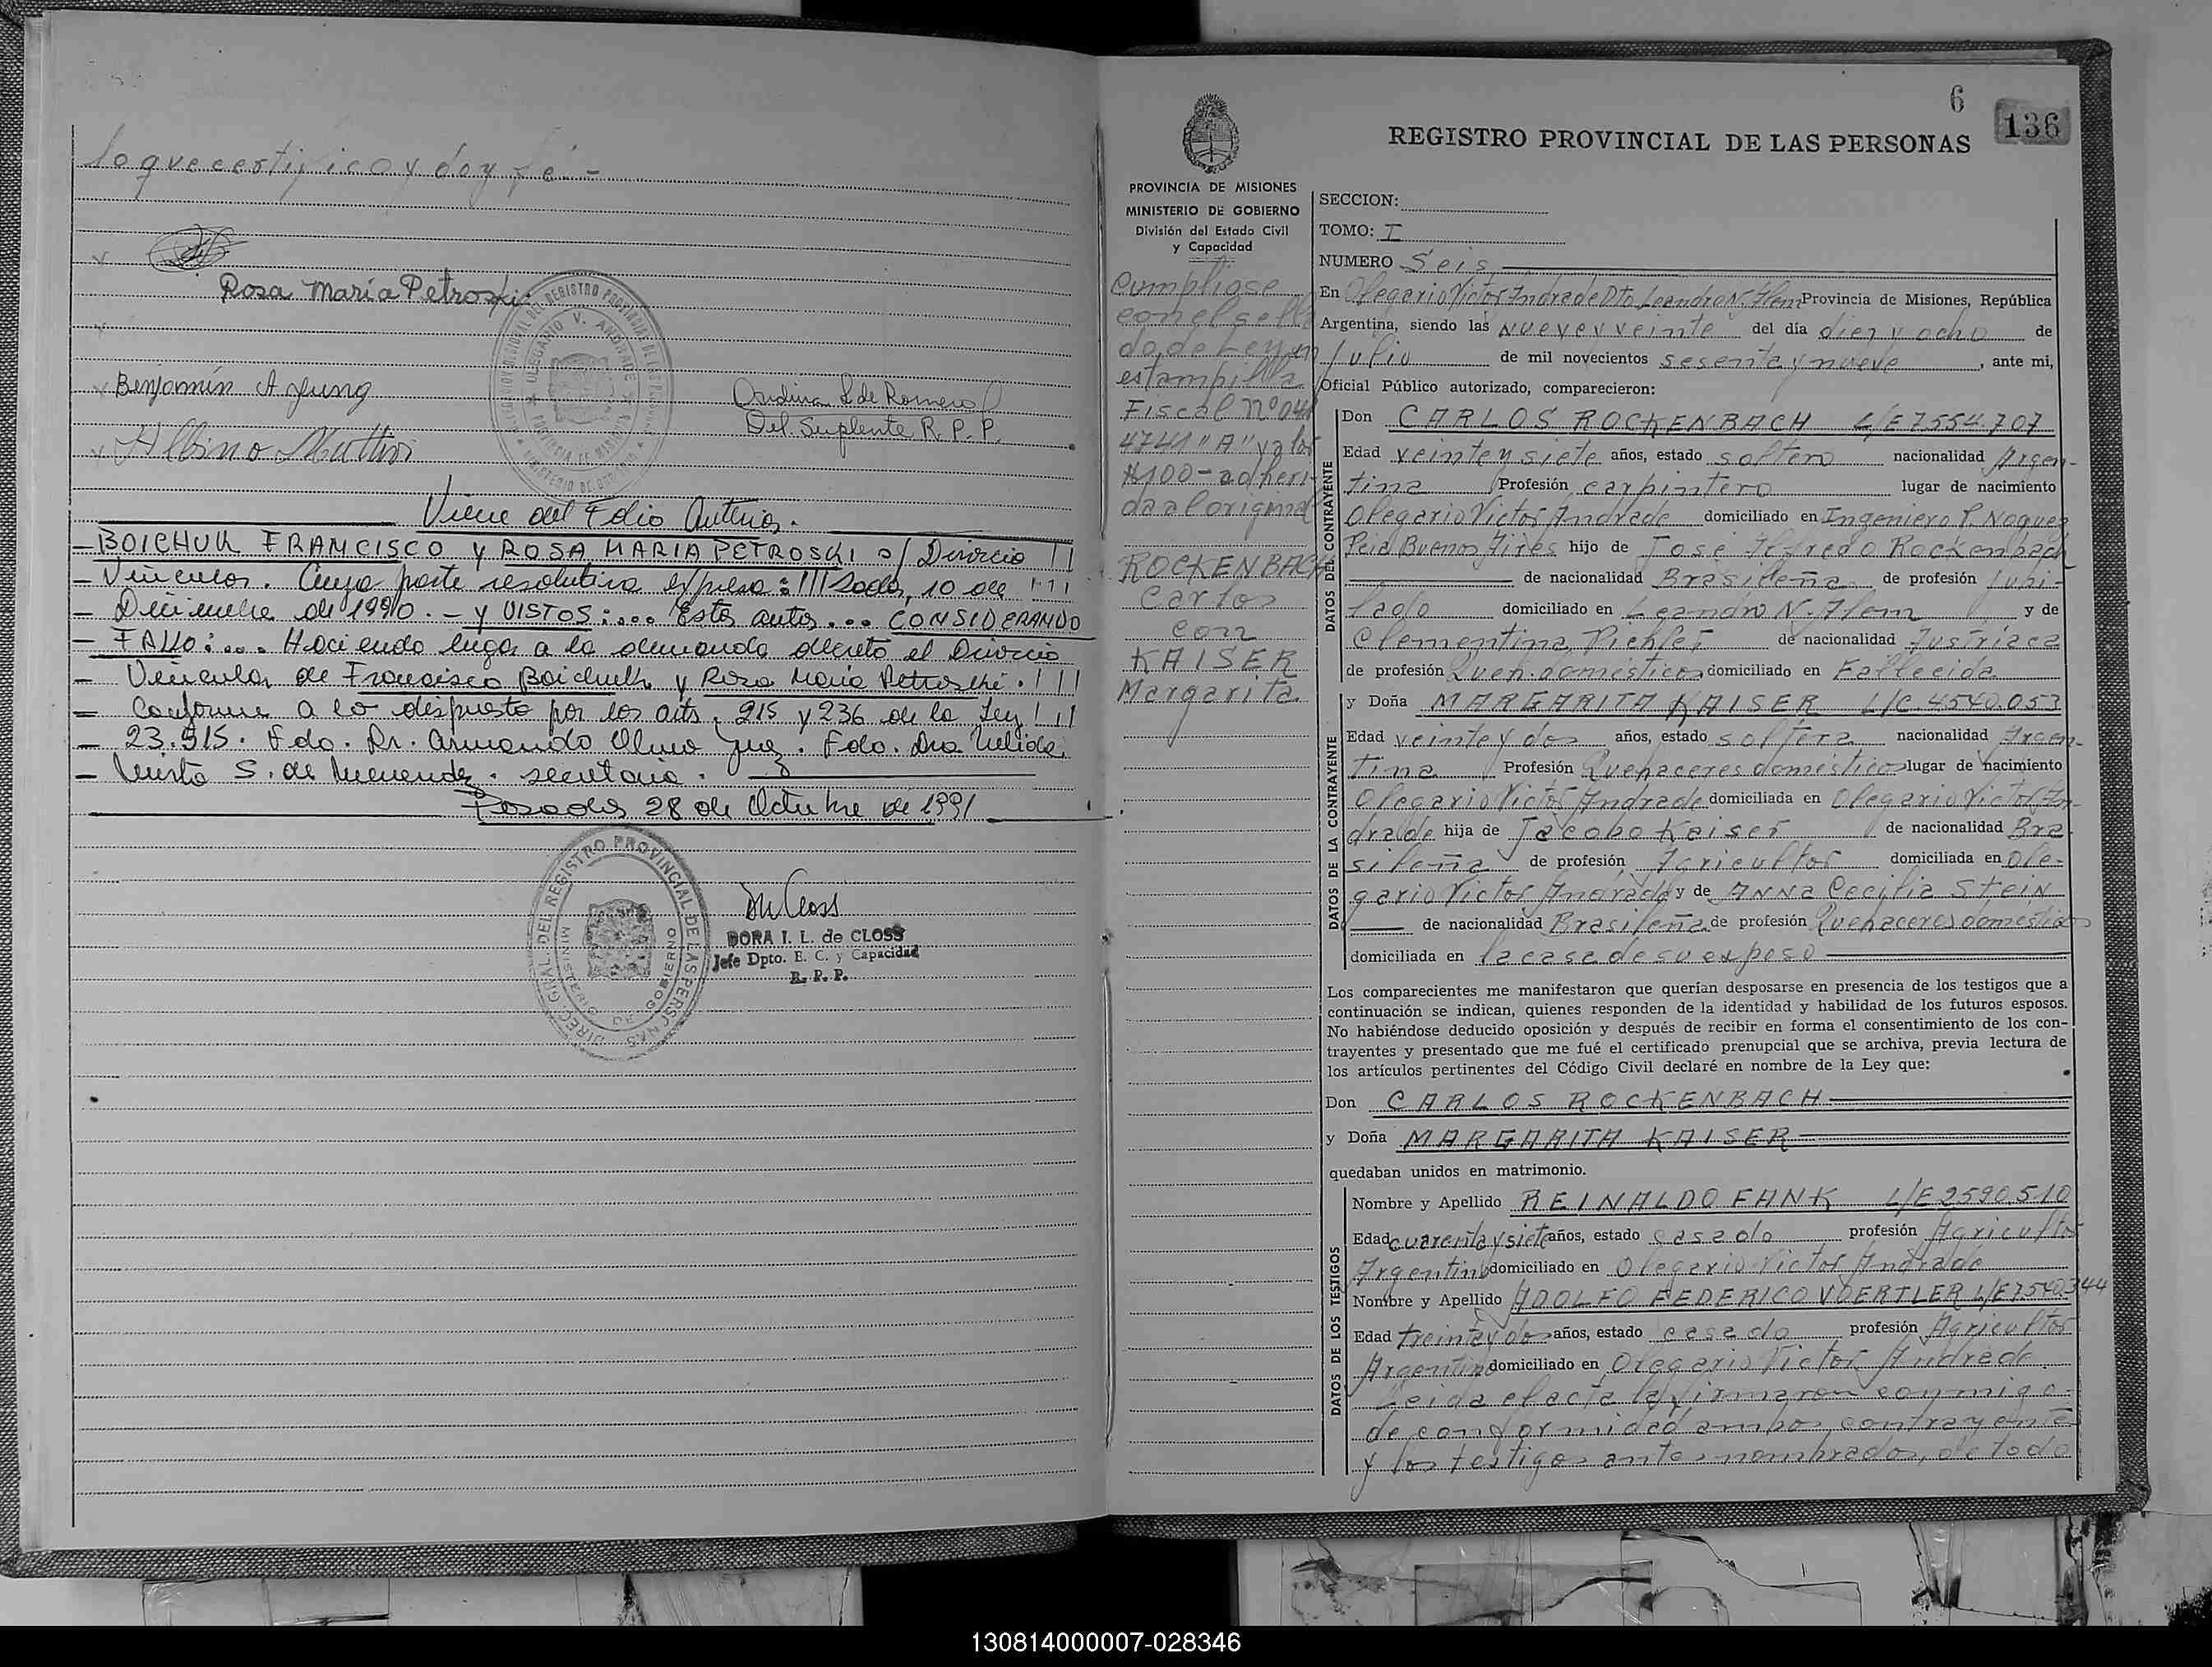 lo que certifico y doy fé.-
Rosa María Petroski
Benjamín A Jung
Ondina L de Romero
Del. Suplente R. P. P.
Albino
Viene del Folio Anterior.
- BOICHUK FRANCISCO y ROSA MARIA PETROSKI s/ Divorcio
- Vincular. Cuya parte resolutiva expresa: ///sadas, 10 de
- Diciembre de 1990.- y VISTOS:... Estos autos... CONSIDERANDO
- FALLO:... Haciendo lugar a la demanda decreto el Divorcio
- Vincular de Francisco Boichuk y Rosa María Petroski.
- Conforme a lo dispuesto por los arts. 215 y 236 de la Ley
- 23.515. Fdo. Dr. Armando Juez. Fdo. Dra Nélida
- S. de secretaria.
Posadas 28 de Octubre de 1991
DIREC. GRAL. DEL REGISTRO PROVINCIAL DE LAS PERSONAS
MINISTERIO DE GOBIERNO
DORA I. L. de CLOSS
Jefe Dpto. E. C. y Capacidad
R. P. P.
6
136
REGISTRO PROVINCIAL DE LAS PERSONAS
PROVINCIA DE MISIONES
MINISTERIO DE GOBIERNO
División del Estado Civil
y Capacidad
Cumpliose
con el sella
do de Ley en
estampilla
Fiscal Nº 04
4741 "A" valor
$100- adheri
da al original
ROCKENBACH
Carlos
con
KAISER
Margarita
SECCION:
TOMO: I
NUMERO Seis
En Olegario Victor Andrade Dto. Leandro N. Alem Provincia de Misiones, República
Argentina, siendo las nueve y veinte del día diez y ocho de
Julio de mil novecientos sesenta y nueve, ante mi,
Oficial Público autorizado, comparecieron:
DATOS DEL CONTRAYENTE
Don CARLOS ROCKENBACH L/E 7554.707
Edad veinte y siete años, estado soltero nacionalidad Argen-
tina Profesión carpintero lugar de nacimiento
Olegario Victor Andrade domiciliado en Ingeniero P. Nogues
Pcia Buenos Aires hijo de José Alfredo Rockenbach
de nacionalidad Brasileña de profesión Jubi-
lado domiciliado en Leandro N. Alem y de
Clementina Pichler de nacionalidad Austriaca
de profesión Queh. domésticos domiciliado en Fallecida
DATOS DE LA CONTRAYENTE
y Doña MARGARITA KAISER L/C. 4540.053
Edad veinte y dos años, estado soltera nacionalidad Argen-
tina Profesión Quehaceres domésticos lugar de nacimiento
Olegario Victor Andrade domiciliada en Olegario Victor An-
drade hija de Jacobo Kaiser de nacionalidad Bra
sileña de profesión Agricultor domiciliada en Ole-
gario Victor Andrade y de Anna Cecilia Stein
de nacionalidad Brasileña de profesión Quehaceres domésticos
domiciliada en la casa de su esposo
Los comparecientes me manifestaron que querían desposarse en presencia de los testigos que a
continuación se indican, quienes responden de la identidad y habilidad de los futuros esposos.
No habiéndose deducido oposición y después de recibir en forma el consentimiento de los con-
trayentes y presentado que me fué el certificado prenupcial que se archiva, previa lectura de
los artículos pertinentes del Código Civil declaré en nombre de la Ley que:
Don CARLOS ROCKENBACH
y Doña MARGARITA KAISER
quedaban unidos en matrimonio.
DATOS DE LOS TESTIGOS
Nombre y Apellido REINALDO FANK L/E 2590.510
Edad cuarenta y siete años, estado casado profesión Agricultor
Argentino domiciliado en Olegario Victor Andrade
Nombre y Apellido ADOLFO FEDERICO VOERTLER L/E 7.540.344
Edad treinta y dos años, estado casado profesión Agricultor
Argentino domiciliado en Olegario Victor Andrade.
Leida el acta la firmaron conmigo
de conformidad ambos contrayente
y los testigos antes nombrados, de todo
130814000007-028346